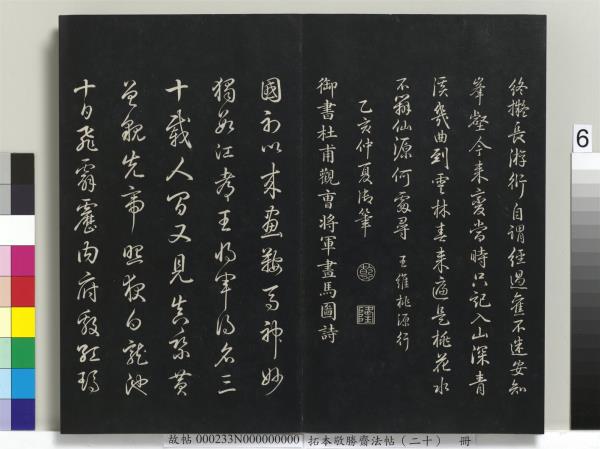 終擬長游衍自謂經過舊不迷安知
峯壑今來變當時只記入山深青
溪幾曲到雲林春來遍是桃花水
不辨仙源何處尋 王維桃源行
乙亥仲夏御筆
乾 隆
御書杜甫觀曹將軍畫馬圖詩
國初以來畫鞍馬神妙
獨數江都王將軍得名三
十載人間又見真乘黃
曾貌先帝照夜白龍池
十日飛霹靂內府殷紅瑪
故帖 000233N000000000 拓本敬勝齋法帖（二十） 冊
6